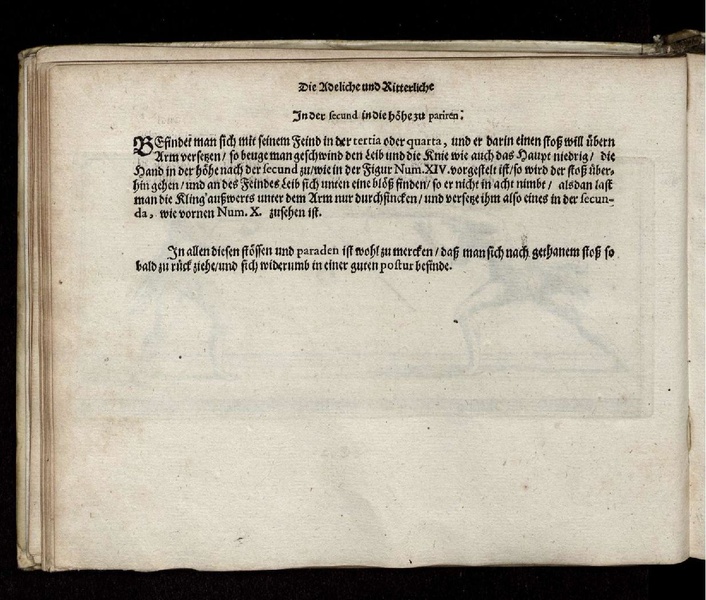 Die Adeliche und Ritterliche
In der secund in die höhe zu pariren:
BEfindet man sich mit seinem Feind in der tertia oder quarta, und er darin einen stoß will übern
Arm versetzen / so beuge man geschwind den Leib und die Knie wie auch das Haupt niedrig / die
Hand in der höhe nach der secund zu/wie in der Figur Num.XIV. vorgestelt ist/so wird der stoß über-
hin gehen / und an des Feindes Leib sich unten eine blöß finden/ so er nicht in acht nimbt / alsdan last
man die Kling außwerts unter dem Arm nur durchsincken / und versetze ihm also eines in der secun-
da, wie vornen Num. X. zusehen ist.
In allen diesen stössen und paraden ist wohl zu mercken / daß man sich nach gethanem stoß so
bald zu rück ziehe/und sich widerumb in einer guten postur befinde.